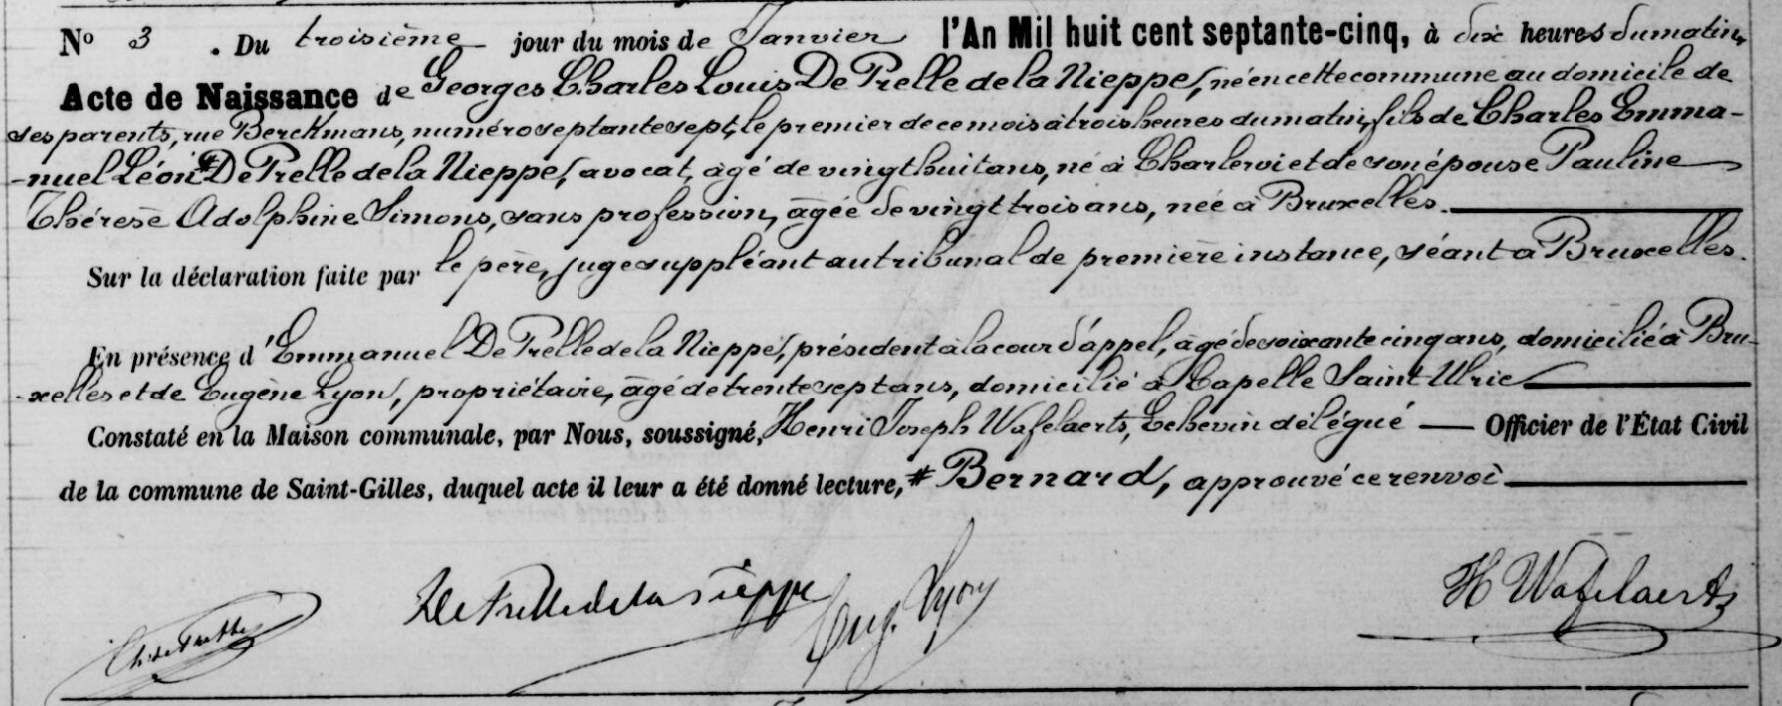 N° 3. Du troisième jour du mois de Janvier l'An Mil huit cent septante-cinq, à dix heures du matin,
Acte de Naissance de Georges Charles Louis De Prelle de la Nieppe, né en cette commune au domicile de
ses parents, rue Berckmans, numéro septante sept, le premier de ce mois à trois heures du matin, fils de Charles Emma-
-nuel Léon # De Prelle de la Nieppe, avocat, âgé de vingt huit ans, né à Charleroi et de son épouse Pauline
Thérèse Adolphine Simons, sans profession, âgée de vingt trois ans, née à Bruxelles.
Sur la déclaration faite par le père, juge suppléant au tribunal de première instance, séant à Bruxelles.
En présence d'Emmanuel De Prelle de la Nieppe, président à la cour d'appel, âgé de soixante cinq ans, domicilié à Bru-
-xelles et de Eugène Lyon, propriétaire, âgé de trente sept ans, domicilié à Capelle Saint Ulric
Constaté en la Maison communale, par Nous, soussigné, Henri Joseph Wafelaerts, Echevin délégué — Officier de l'État Civil
de la commune de Saint-Gilles, duquel acte il leur a été donné lecture, # Bernard, approuvé ce renvoi
Ch. de Prelle De Prelle de la Nieppe Eug. Lyon H Wafelaerts